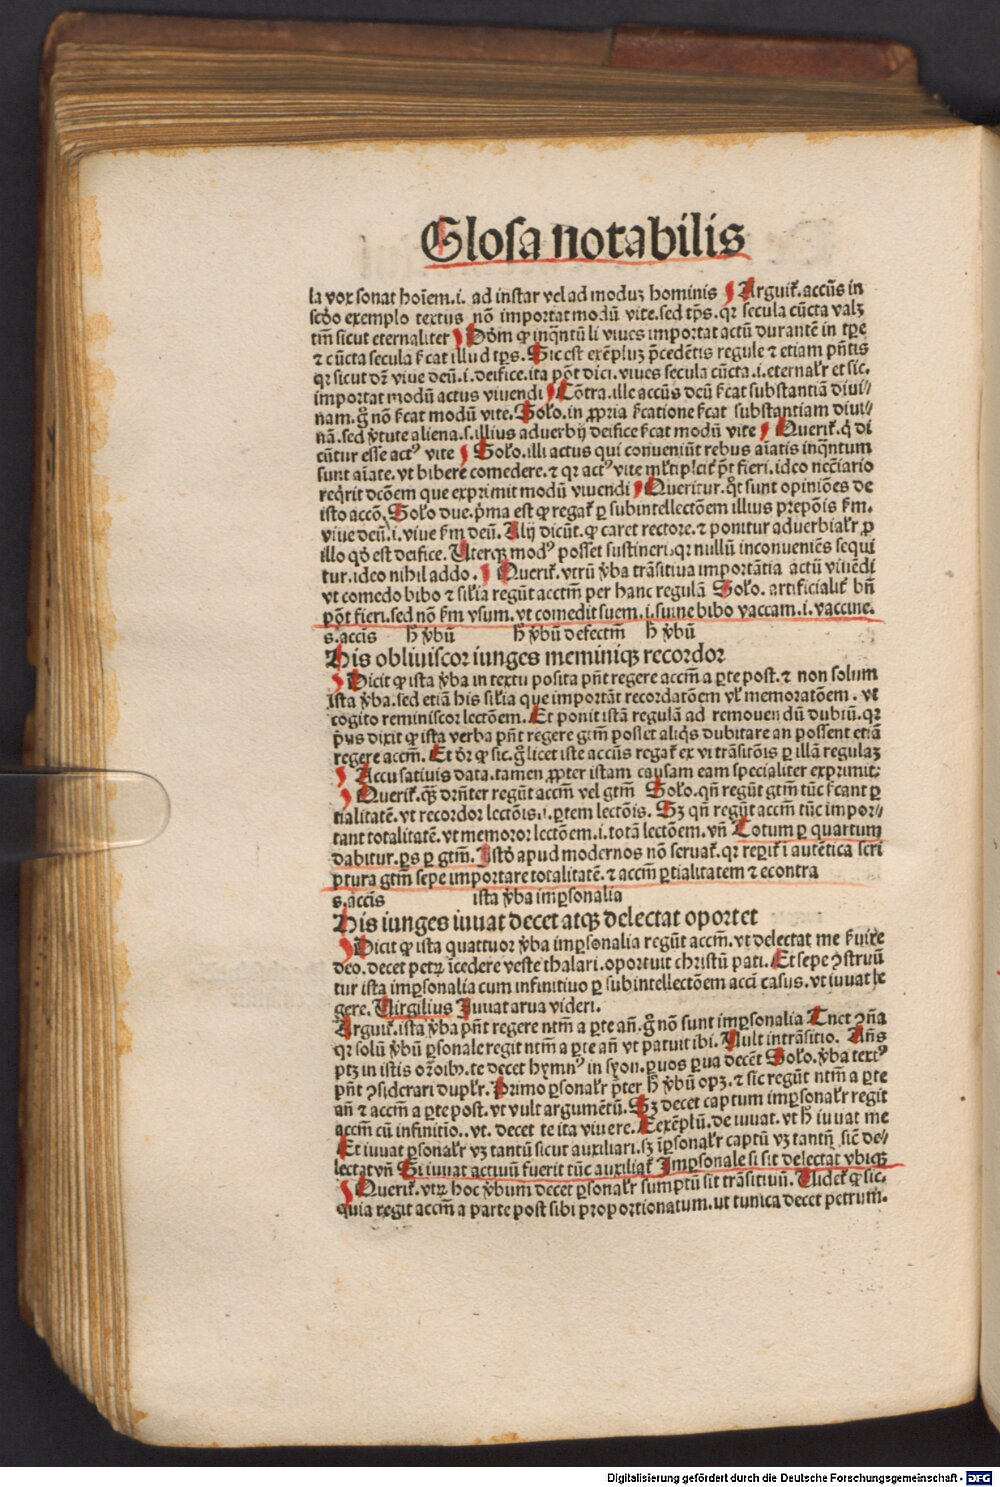 Glosa notabilis
la vox sonat hoīem.i. ad instar vel ad moduȝ hominis Arguiť.accūs in
scďo exemplo textus nō importat modū vite.sed tp̄s.qr secula cūcta valȝ
tm̄ sicut eternaliter Dōm ꝙ inqͣntū li viues importat actū durantē in tp̄e
⁊ cūcta secula ſ̄cat illud tp̄s.Sic est exēpluȝ p̄cedētis regule ⁊ etiam pn̄tis
qr sicut dr̄ viue deū.i.deifice.ita pōt dici.viues secula cūcta.i.eternalr̄ et sic.
importat modū actus viuendi Cōtra.ille accūs deū ſ̄cat substantiā diui/
nam.g̊ nō ſ̄cat modū vite.Solo.in ꝓpria ſ̄catione ſ̄cat substantiam diui/
nā.sed v̓tute aliena.s.illius aduerbij deifice ſ̄cat modū vite Queriť.q̇ di
cūtur esse actꝰ vite Solo.illi actus qui conueniūt rebus aīatis inqͣntum
sunt aīate.vt bibere comedere.⁊ qr actꝰ vite mltiplciť pn̄t fieri.ideo necc̄iario
reqͥrit dcōem que exprimit modū viuendi Queritur.qͦt sunt opiniōes de
isto accō.Solo due.pͥma est ꝙ regať ꝑ subintellectōem illius prepōis ſm̄.
viue deū.i.viue ſm̄ deū.Alij dicūt.ꝙ caret rectore.⁊ ponitur aduerbialr̄ ꝓ
illo qď est deifice.Uterqȝ modꝰ posset sustineri.qr nullū inconueniēs sequi
tur.ideo nihil addo. Queriť.vtrū v̓ba trāsitiua importātia actū viuēdi
vt comedo bibo ⁊ silīa regūt acctm̄ per hanc regulā Solo.artificialiť bn̄
pōt fieri.sed nō ſm̄ vsum.vt comedit suem.i.suine bibo vaccam.i.vaccine.
s.accīs h̄ v̓bū h̄ v̓bū defectm̄ h̄ v̓bū
His obliuiscor iunges meminiqȝ recordor
Dicit ꝙ ista v̓ba in textu posita pn̄t regere accm̄ a ꝑte post.⁊ non solum
ista v̓ba.sed etiā his silīa que importāt recordatōem vl̓ memoratōem. vt
cogito reminiscor lectōem.Et ponit istā regulā ad remouendū dubiū.qr
pͥus dixit ꝙ ista verba pn̄t regere gtm̄ posset aliqͥs dubitare an possent etiā
regere accm̄.Et dr̄ ꝙ sic.g̊ licet iste accūs regať ex vi trāsitōis ꝑ illā regulaȝ
Accusatiuis data.tamen ꝓpter istam causam eam specialiter exprimit:
Queriť.qͣȝ drn̄ter regūt accm̄ vel gtm̄ Solo.qn̄ regūt gtm̄ tūc ſ̄cant ꝑ
tialitatē.vt recordor lectōis.i.ꝑtem lectōis. Sȝ qn̄ regūt accm̄ tūc impor/
tant totalitatē.vt memoror lectōem.i.totā lectōem.vn̄ Totum ꝑ quartum
dabitur.ꝑs ꝑ gtm̄.Istď apud modernos nō seruať.qr reperiť i autētica scri
ptura gtm̄ sepe importare totalitatē.⁊ accm̄ ꝑtialitatem ⁊ econtra
s.accīs ista v̓ba imꝑsonalia
His iunges iuuat decet atqȝ delectat oportet
Dicit ꝙ ista quattuor v̓ba imꝑsonalia regūt accm̄.vt delectat me ſ̄uire
deo.decet petrȝ īcedere veste thalari.oportuit christū pati.Et sepe ɔstruū
tur ista imꝑsonalia cum infinitiuo ꝑ subintellectōem acci casus.vt iuuat le
gere.Uirgilius Juuat arua videri.
Arguiť.ista v̓ba pn̄t regere ntm̄ a ꝑte an̄.g̊ nō sunt imꝑsonalia Tnet ɔn̄a
qr solū v̓bū ꝑsonale regit ntm̄ a ꝑte an̄ vt patuit ibi.Uult intrāsitio. Ans̄
ptȝ in istis or̄oibꝰ.te decet hymnꝰ in syon.ꝑuos ꝑua decēt Solo.v̓ba textꝰ
pn̄t ɔsiderari duplr̄.Primo ꝑsonalr̄ pͥter h̄ v̓bū opȝ.⁊ sic regūt ntm̄ a ꝑte
an̄ ⁊ accm̄ a ꝑte post.vt vult argumētū.Sȝ decet captum imꝑsonalr̄ regit
accm̄ cū infinitio..vt. decet te ita viuere.Eexēplū.de iuuat.vt h̄ iuuat me
Et iuuat ꝑsonalr̄ vȝ tantū sicut auxiliari.sȝ īꝑsonalr̄ captū vȝ tantū sic̄ de/
lectat vn̄ Si iuuat actiuū fuerit tūc auxiliať Imꝑsonale si sit delectat vbiqȝ
Queriť.vtrȝ hoc v̓bum decet ꝑsonalr̄ sumptū sit trāsitiuū.Uideť ꝙ sic.
quia regit accm̄ a parte post sibi proportionatum.ut tunica decet petrum.
Digitalisierung gefördert durch die Deutsche Forschungsgemeinschaft - DFG